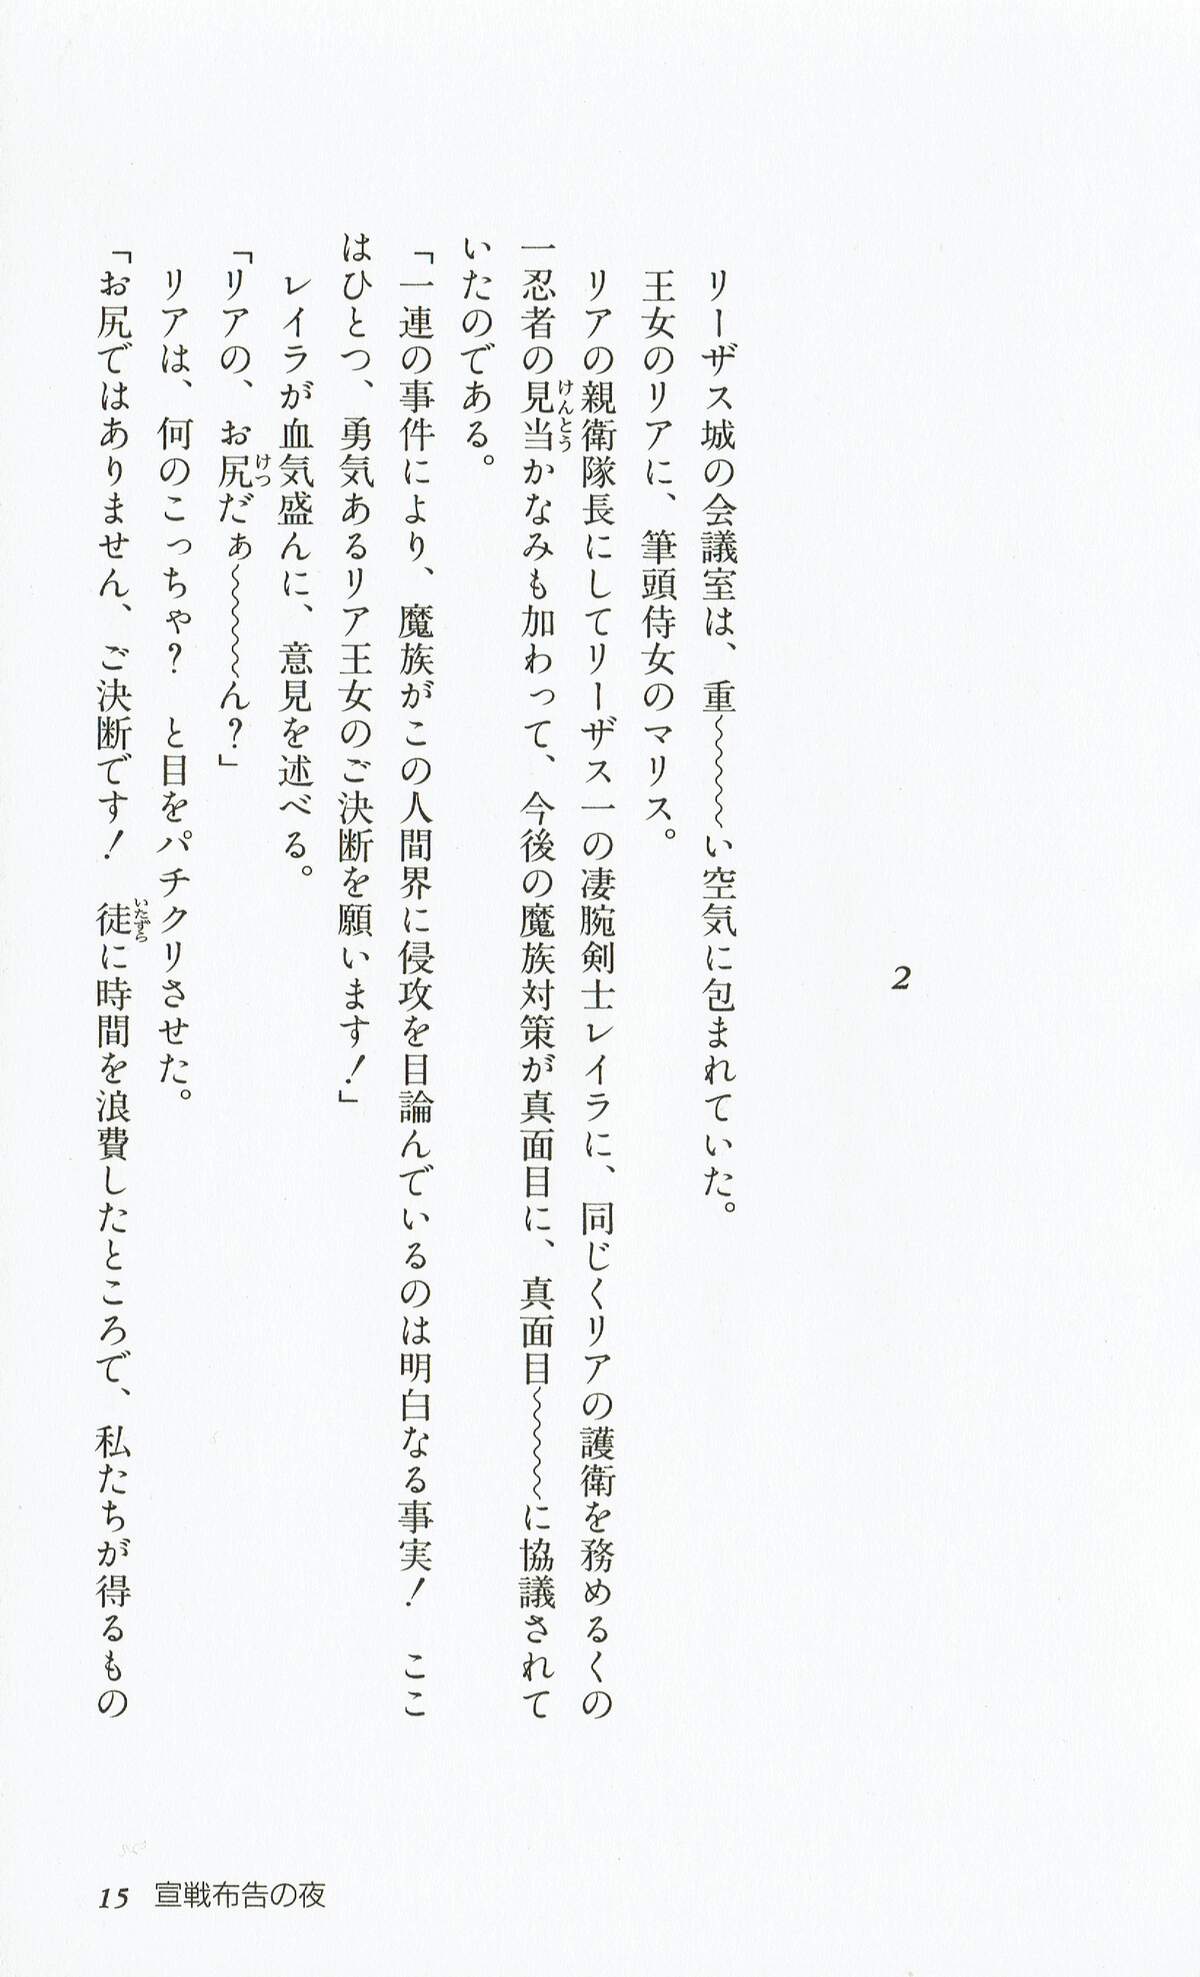 2
リーザス城の会議室は、重〜〜〜〜い空気に包まれていた。
王女のリアに、筆頭侍女のマリス。
リアの親衛隊長にしてリーザス一の凄腕剣士レイラに、同じくリアの護衛を務めるくの
一忍者の見当かなみも加わって、今後の魔族対策が真面目に、真面目〜〜〜〜に協議されて
けんとう
いたのである。
「一連の事件により、魔族がこの人間界に侵攻を目論んでいるのは明白なる事実！　ここ
はひとつ、勇気あるリア王女のご決断を願います！」
レイラが血気盛んに、意見を述べる。
「リアの、お尻だぁ〜〜〜〜ん？」
けつ
リアは、何のこっちゃ？　と目をパチクリさせた。
「お尻ではありません、ご決断です！　徒に時間を浪費したところで、私たちが得るもの
いたずら
15 宣戦布告の夜